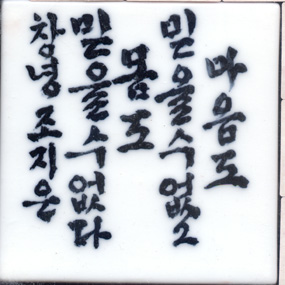 마음도
믿을수없고
몸도
믿을수없다
창녕 조지은